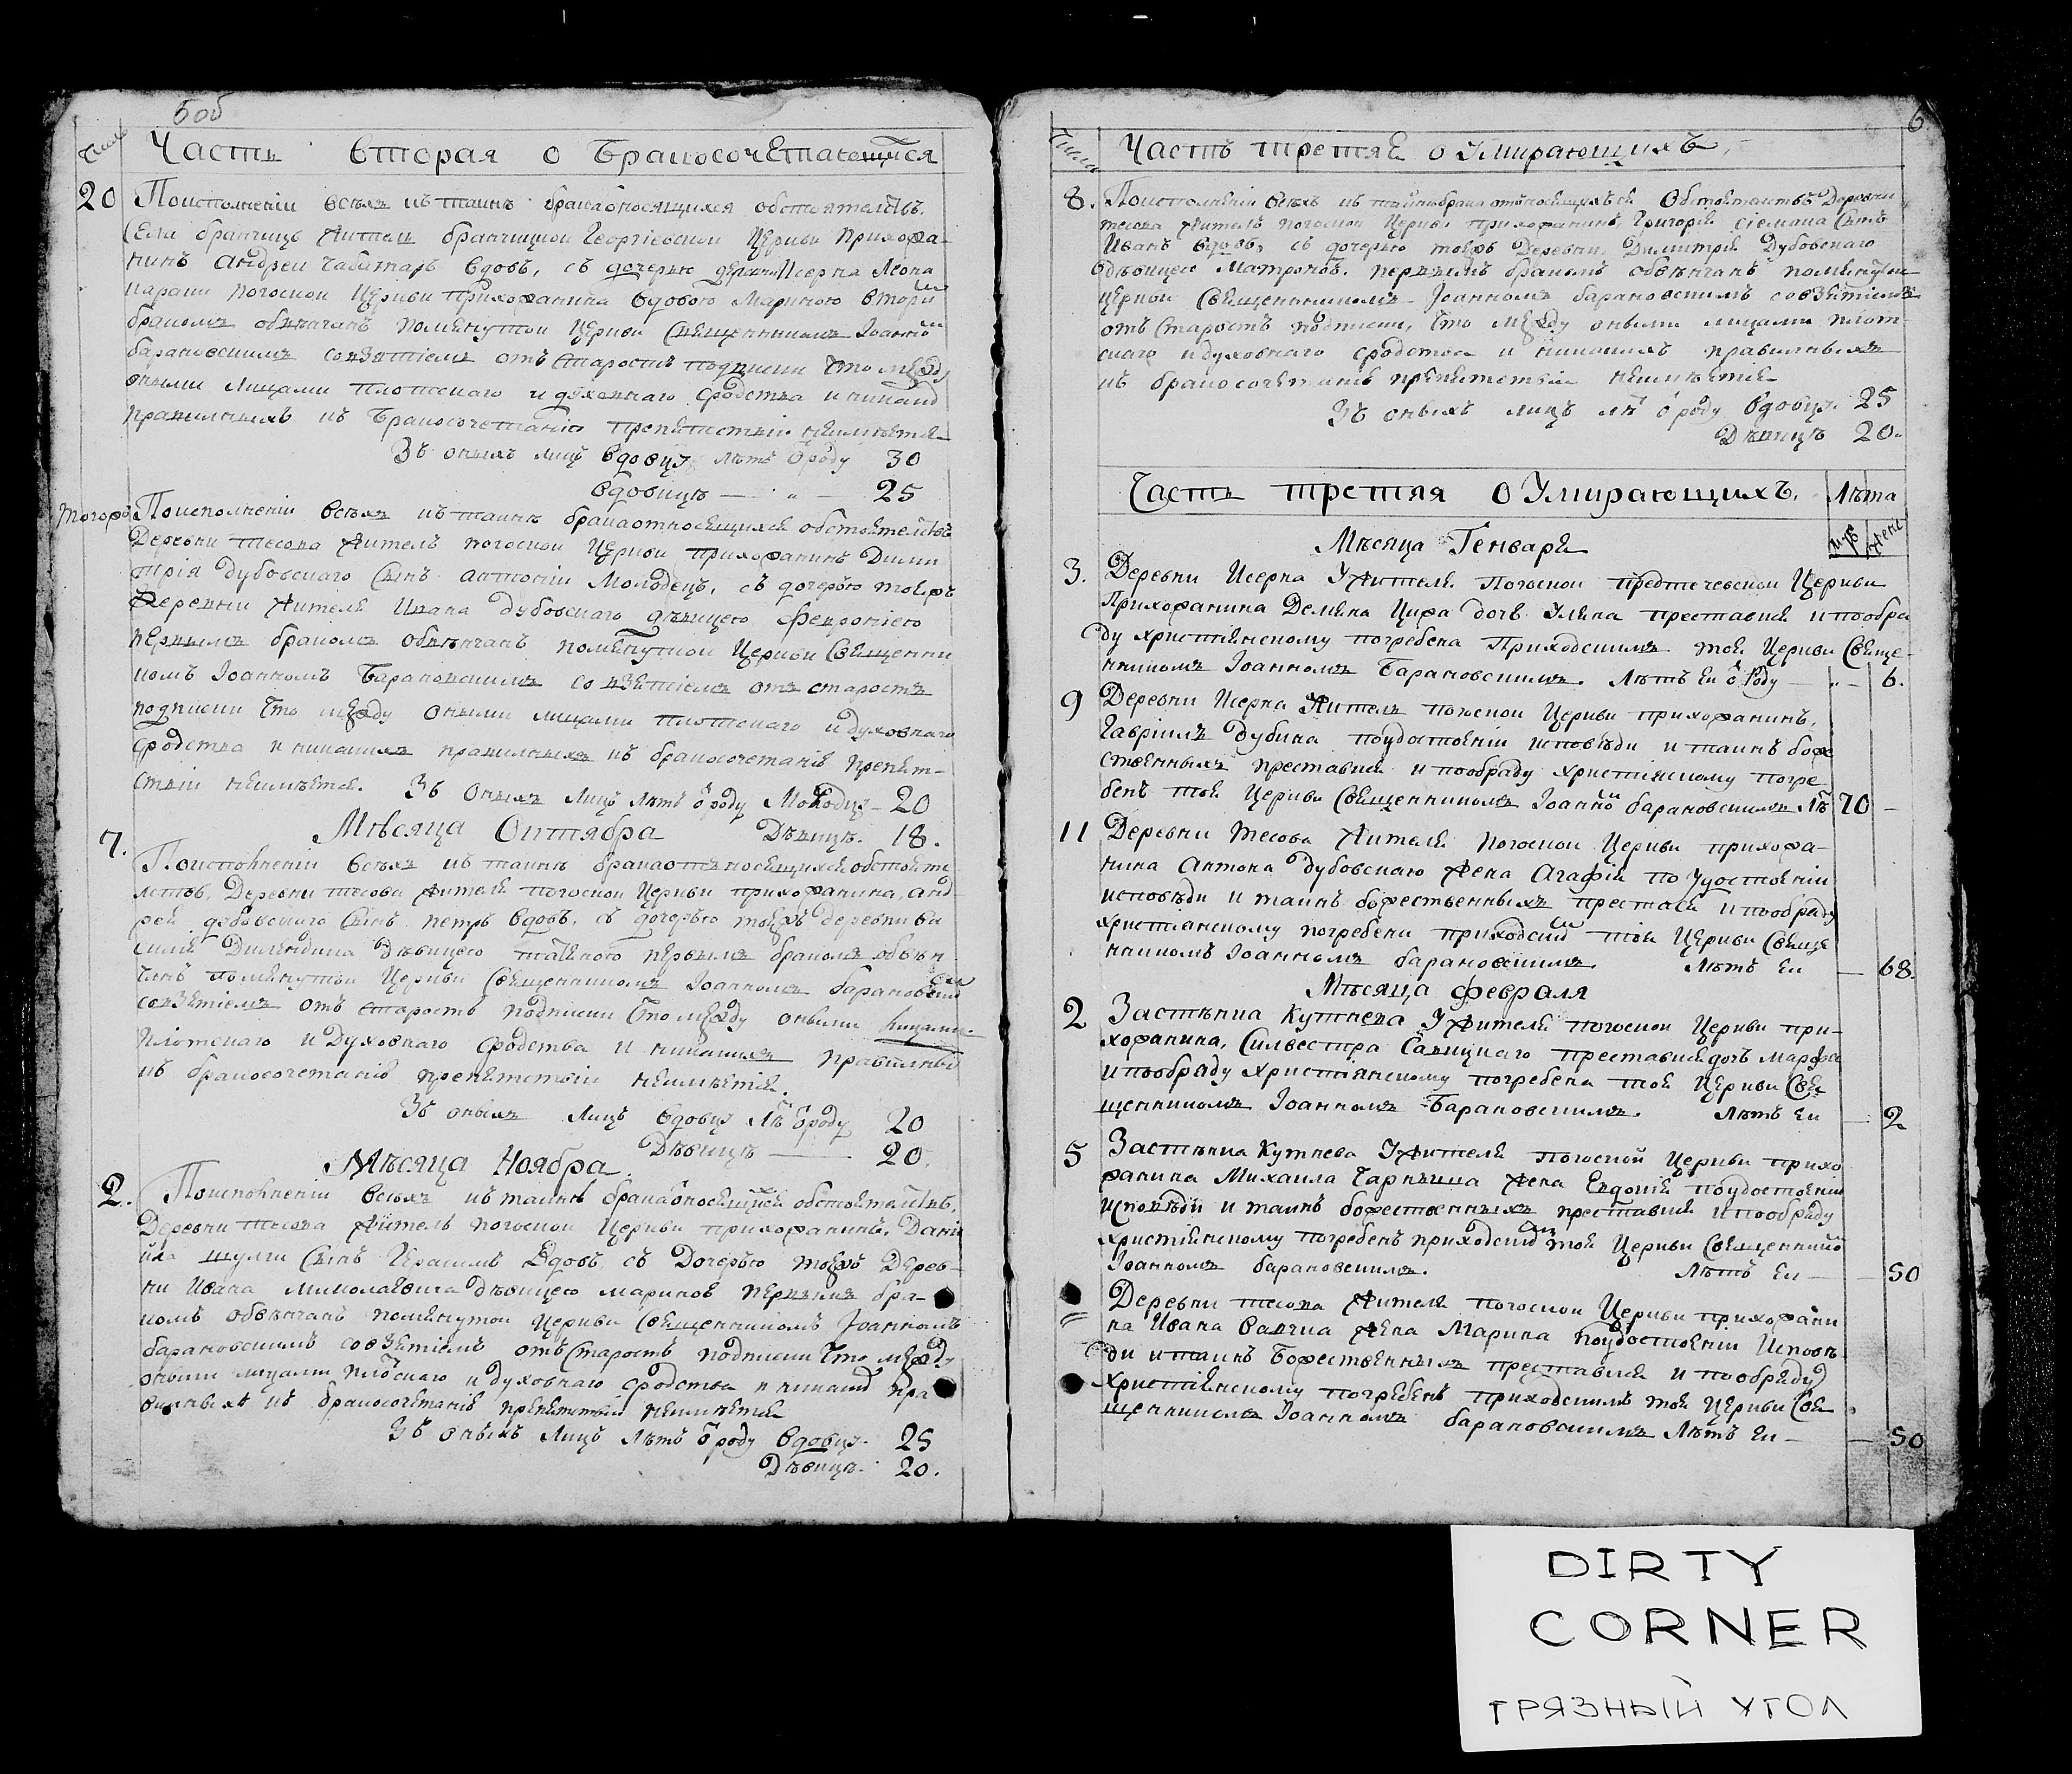 5 об
Числа
Часть вторая о бракосочетающихся
20 Поисполненіи всѣхъ къ таинѣ бракаотносящихся обстоятелствъ.
Села бранчицъ житель бранчицкой Георгіевской Церкви Прихожа-
нинъ Андреи чабатаръ вдовъ, съ дочерью деревни Исерна Леона
погоской Церкви прихожанина вдовою Мариною вторымъ
бракомъ обвѣнчанъ помянутой Церкви Священникомъ Іоанномъ
барановскимъ совзятіемъ отъ старостъ подписки что между
оными лицами плотскаго и духовнаго сродства и никакихъ
правильныхъ къ бракосочетанію препятствіи неимѣется
Зъ оныхъ лицъ вдовцу лѣтъ о̄ роду 30
вдовицѣ — „ — 25
Тогожъ Поисполненіи всѣхъ къ таинѣ бракаотносящихся обстоятелствъ
Деревни тесова житель погоской Церкви прихожанинъ Дими
трія дубовскаго сынъ антоніи Молодецъ, съ дочерью тояжъ
Деревни жителя Ивана дубовскаго дѣвицею февроніею
первымъ бракомъ обвѣнчанъ помянутой Церкви Священни
комъ Іоанномъ Барановскимъ со взятіемъ отъ старостъ
подписки что между оными лицами плотскаго и духовнаго
сродства и никакихъ правильныхъ къ бракосочетанія препят-
ствіи неимѣется. Зъ оныхъ лицъ лѣтъ о̄ роду Молодцу — 20
Мѣсяца Октября Дѣвицѣ. 18.
7. Поисполненіи всѣхъ къ таинѣ бракаотъносящихся обстояте
лствъ, Деревни тесова жителя погоской Церкви прихожанина, анд
рея дубовскаго сынъ петръ вдовъ, съ дочерью тояжъ деревни ва
силія дѣвицею первымъ бракомъ обвѣн
чанъ помянутой Церкви Священникомъ Іоанномъ барановскимъ
совзятіемъ отъ старостъ подписки что между оными лицами
плотскаго и духовнаго сродства и никакихъ правильныхъ
къ бракосочетанія препятствіи неимѣется.
Зъ оныхъ лицъ вдовцу лѣтъ о̄роду 20
Дѣвицѣ — 20.
Мѣсяца Ноября
2. Поисполненіи всѣхъ къ таинѣ бракаотносящихся обстоятелствъ,
Деревни тесова житель погоской Церкви прихожанинъ, Дани
ила шулги сынъ Герасимъ вдовъ, съ дочерью тояжъ Дерев-
ни Ивана миколаевича дѣвицею мариною первымъ бра-
комъ обвѣнчанъ помянутой Церкви Священникомъ Іоанномъ
барановскимъ совзятіемъ отъ старостъ подписки что между
оными лицами плотскаго и духовнаго сродства и никакихъ пра
вилныхъ къ бракосочетанія препятствіи неимѣется
Зъ оныхъ лицъ лѣтъ о̄ роду вдовцу. 25
Дѣвицѣ. 20.
6
Числа
Часть третяя о Умирающихъ.
8. Поисполненіи всѣхъ къ таинѣбрака отъносящихъся Обстоятелствъ Деревни
тесова житель погоской Церкви прихожанинъ, Григорія сіемана сынъ
Иванъ вдовъ, съ дочерью тояжъ Деревни, Димитрія Дубовскаго
дѣвицею Матроною. первымъ бракомъ обвѣнчанъ помянутой
церкви Священникомъ Іоанномъ барановскимъ совзятіемъ
отъ старостъ подписки, что между оными лицами плот-
скаго идуховнаго сродства и никакихъ правильныхъ
къ бракосочетанія препятствіи неимѣется
Зъ оныхъ лицъ лѣтъ о̄ роду вдовцу. 25
Дѣвицѣ 20.
Часть третяя о Умирающихъ. Лѣта
муж женс
Мѣсяца Генваря
3. Деревни Исерна Жителя Погоской предтечевской Церкви
Прихожанина Демяна Цира дочь Уляна преставися и пообря
ду христіянскому погребена Приходскимъ тоя Церкви Свяще-
нникомъ Іоанномъ Барановскимъ. Лѣтъ Еи о̄ Роду — „ — 6.
9 Деревни Исерна Житель погоской Церкви прихожанинъ,
Гавріилъ Дубина поудостояніи исповѣди и таинъ боже
ственныхъ преставися и пообряду христіянскому погре
бенъ тоя Церкви Священникомъ Іоанномъ барановскимъ лѣ 70 —
11 Деревни тесова жителя погоской Церкви прихожа-
нина Антона Дубовскаго жена Агафія по Удостояніи
исповѣди и таинъ божественныхъ престася и пообряду
христіанскому погребена приходскимъ тоя Церкви Свяще
нникомъ Іоанномъ барановскимъ. Лѣтъ Еи — 68.
Мѣсяца февраля
2 Застѣнка кутнева Жителя погоской Церкви при-
хожанина, Силвестра Савицкаго преставися дочъ марфа
и пообряду христіянскому погребена тоя Церкви Свя
щенникомъ Іоанномъ Барановскимъ. Лѣтъ Еи — 2
5 Застѣнка Кутнева Жителя погоской Церкви прихо
жанина Михаила жена Евдокія поудостояніи
исповѣди и таинъ божественныхъ преставися и пообряду
христіянскому погребенъ приходскимъ тоя Церкви Священникомъ
Іоанномъ барановскимъ. Лѣтъ Еи — 50
= Деревни тесова жителя погоской Церкви прихожани
на Ивана жена Марина поудостояніи Исповѣ
ди и таинъ Божественныхъ преставися и пообряду
христіянскому погребенъ приходскимъ тоя Церкви Свя
щенникомъ Іоанномъ барановскимъ Лѣтъ Еи — 50
DIRTY
CORNER
ГРЯЗНЫЙ УГОЛ